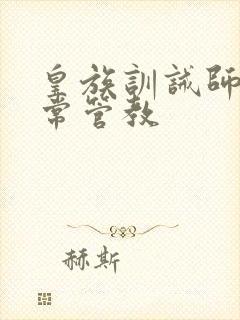 皇族訓誡師
常管教
赫斯